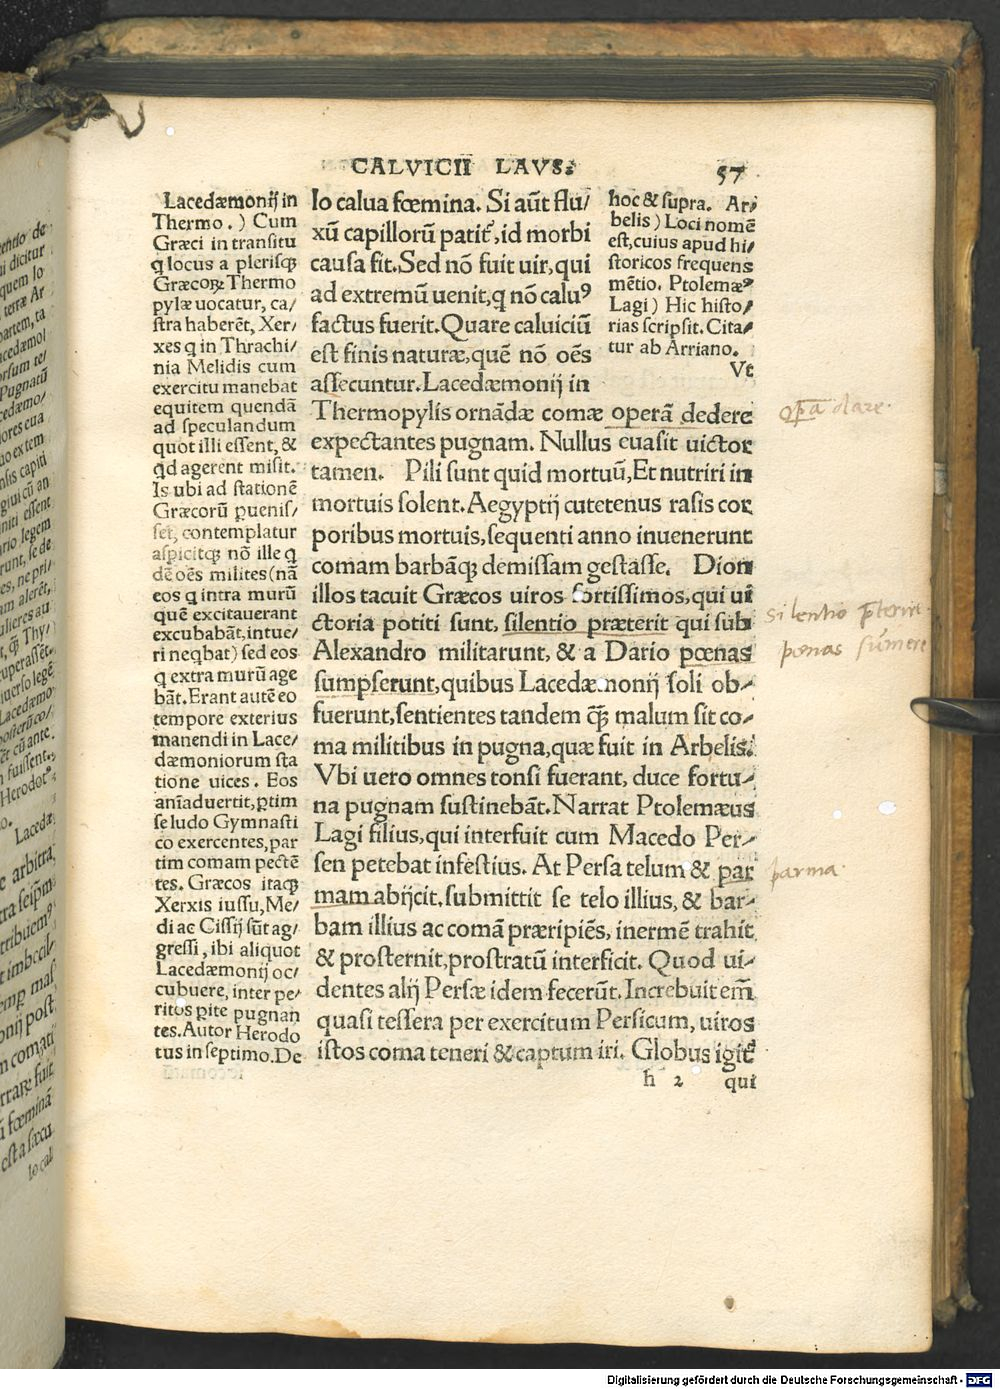 CALVICII LAVS. 57
Lacedæmonij in
Thermo.) Cum
Græci in transitu
q locus a plerisqȝ
Græcoꝝ Thermo
pylæ uocatur, ca/
stra haberēt, Xer/
xes q in Thrachi/
nia Melidis cum
exercitu manebat
equitem quendā
ad speculandum
quot illi essent, &
qd agerent misit.
Is ubi ad stationē
Græcorū ꝑuenis/
set, contemplatur
aspicitqȝ nō ille q
dē oēs milites (nā
eos q intra murū
quē excitauerant
excubabāt, intue/
ri neqbat) sed eos
q extra murū age
bāt. Erant autē eo
tempore exterius
manendi in Lace/
dæmoniorum sta
tione uices. Eos
aniaduertit, ꝑtim
se ludo Gymnasti
co exercentes, par
tim comam pectē
tes. Græcos itaqȝ
Xerxis iussu, Me/
di ac Cissij sūt ag/
gressi, ibi aliquot
Lacedæmonij oc/
cubuere, inter pe/
ritos ꝑite pugnan
tes. Autor Herodo
tus in septimo. De
lo calua fœmina. Si aūt flu/
xū capillorū patit᷑, id morbi
causa fit. Sed nō fuit uir, qui
ad extremū uenit, q nō caluꝰ
factus fuerit. Quare caluiciū
est finis naturæ, quē nō oēs
assecuntur. Lacedæmonij in
Thermopylis ornādæ comæ operā dedere
expectantes pugnam. Nullus euasit uictor
tamen. Pili sunt quid mortuū, Et nutriri in
mortuis solent. Aegyptij cutetenus rasis cor
poribus mortuis, sequenti anno inuenerunt
comam barbāqȝ demissam gestasse. Dion
illos tacuit Græcos uiros fortissimos, qui ui
ctoria potiti sunt, silentio præterit qui sub
Alexandro militarunt, & a Dario pœnas
sumpserunt, quibus Lacedæmonij soli ob/
fuerunt, sentientes tandem qȝ̄ malum sit co/
ma militibus in pugna, quæ fuit in Arbelis.
Vbi uero omnes tonsi fuerant, duce fortu/
na pugnam sustinebāt. Narrat Ptolemæus
Lagi filius, qui interfuit cum Macedo Per/
sen petebat infestius. At Persa telum & par
mam abijcit, submittit se telo illius, & bar/
bam illius ac comā præripiēs, inermē trahit
& prosternit, prostratū interficit. Quod ui/
dentes alij Persæ idem fecerūt. Increbuit em̄
quasi tessera per exercitum Persicum, uiros
istos coma teneri & captum iri. Globus igit᷑
h 2 qui
hoc & supra. Ar/
belis) Loci nomē
est, cuius apud hi/
storicos frequens
mētio. Ptolemæꝰ
Lagi) Hic histo/
rias scripsit. Cita/
tur ab Arriano.
Vt
opā dare.
silentio pterire.
pœnas sūmere
parma.
Digitalisierung gefördert durch die Deutsche Forschungsgemeinschaft - DFG